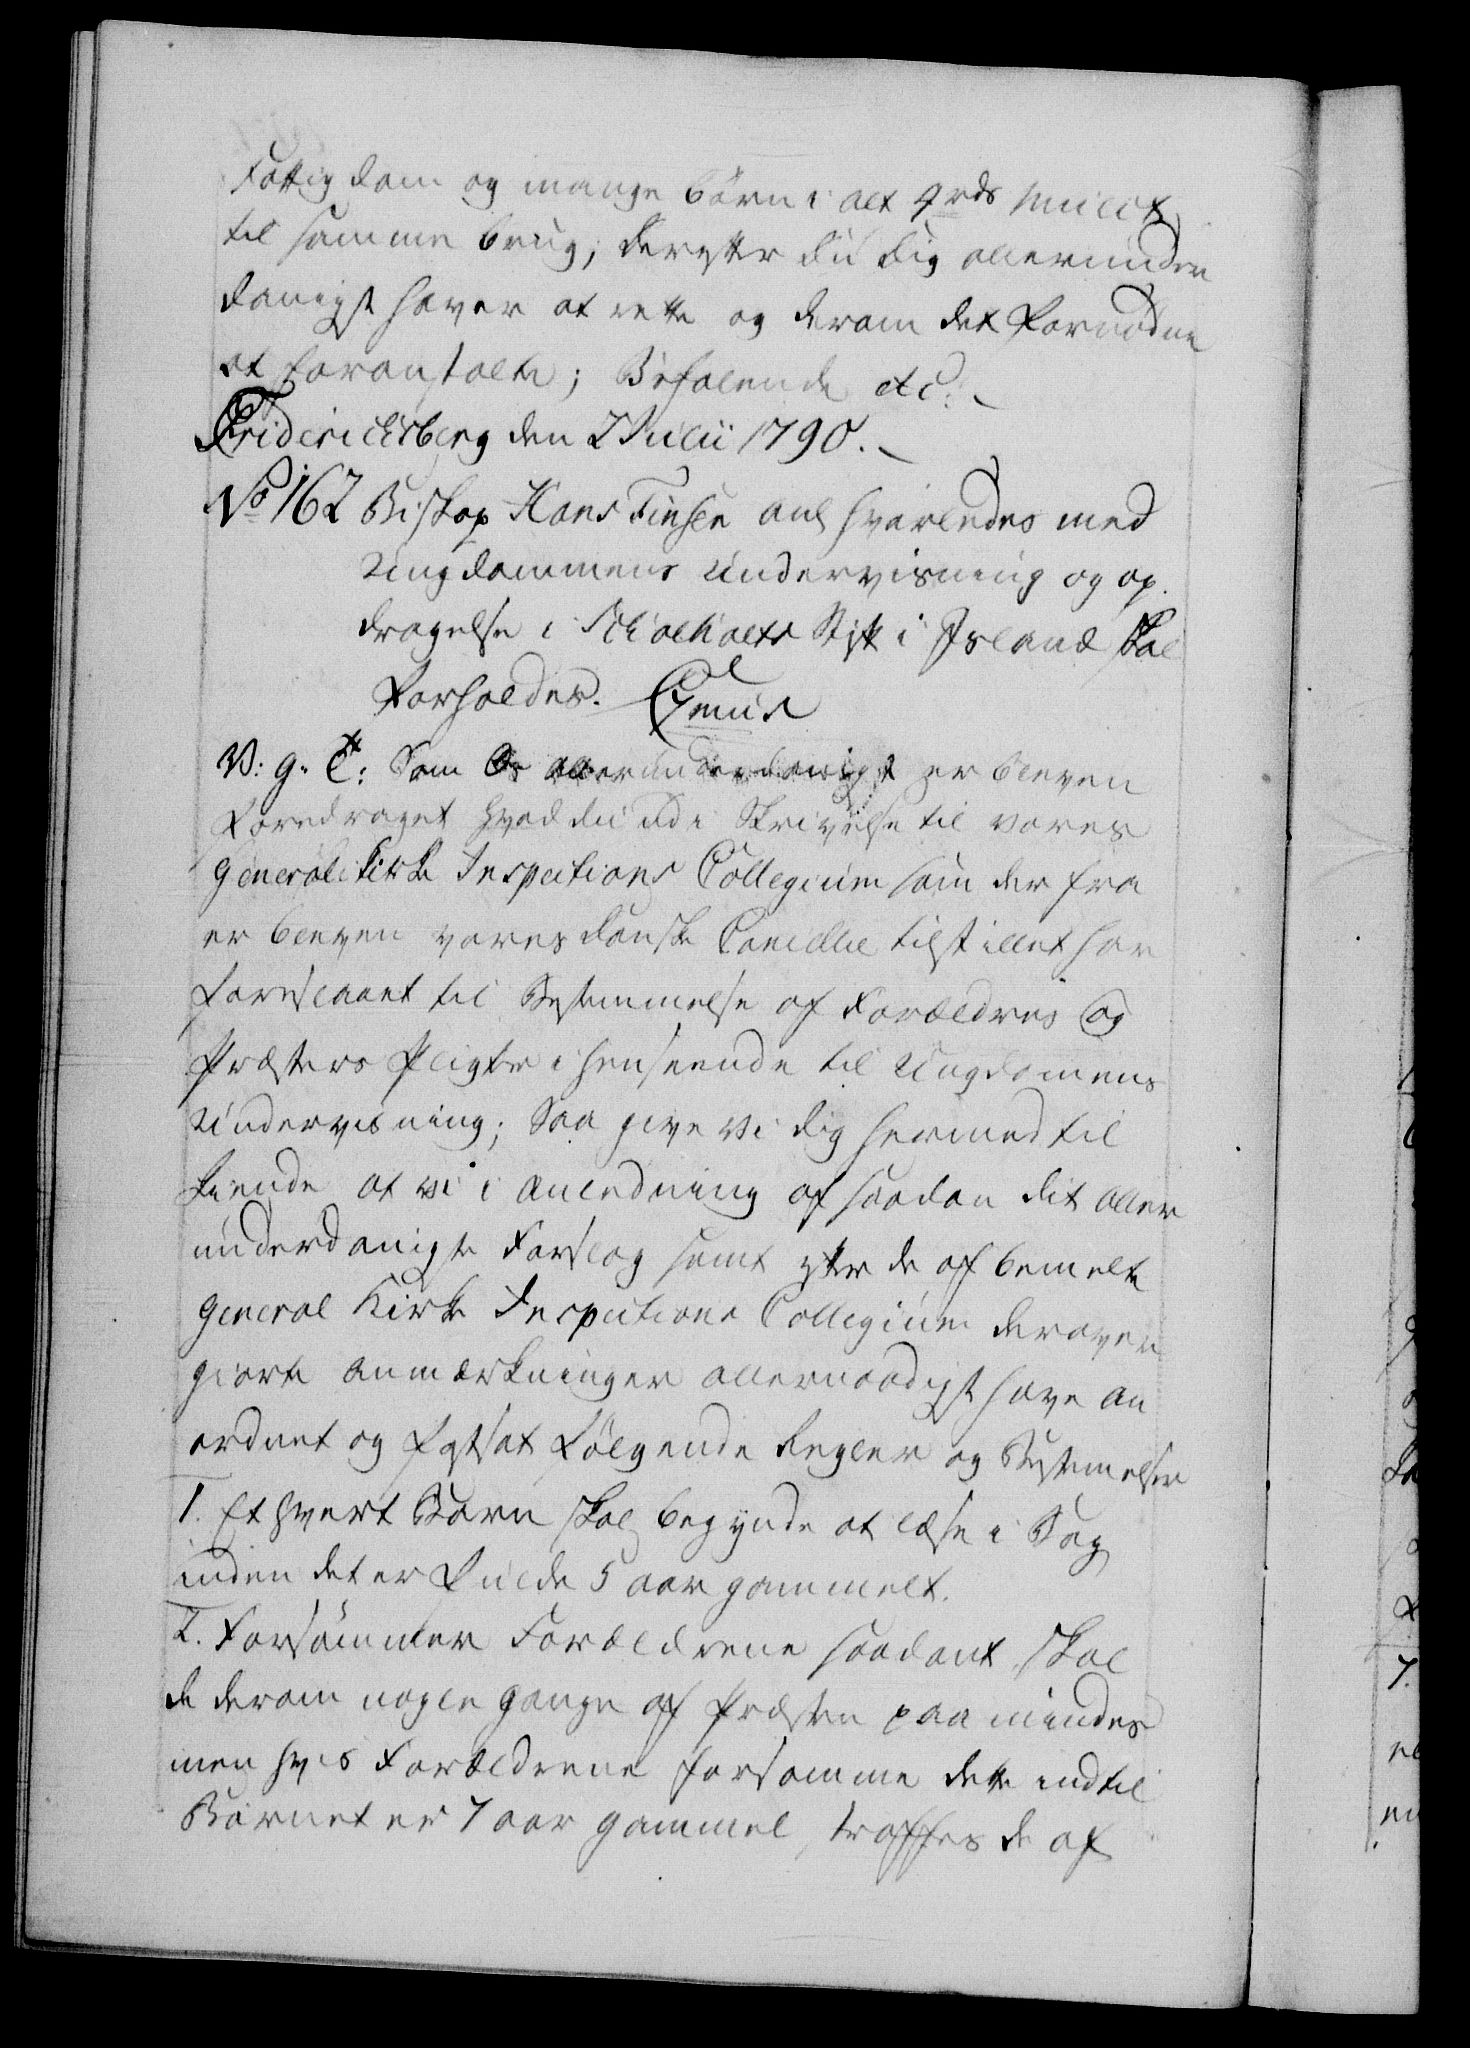 Fattigdom og mange børn i alt 4 rdr Mulct
til samme brug; derefter du dig allerunder
danigst haver at rette og derom det Fornødne
at foranstalte; Befalende etc:
Friderichsberg den 2 Julii 1790.
No 162 Biskop Hans Finsen anl hvorledes med
Ungdommens Undervisning og op-
dragelse i Schalholts Stift i Island skal
Forholdes.
V: g. C: Som Os allerunderdanigst er bleven
Foredraget hvad du udi Skrivelse til vores
General Kirke Inspections Collegium som der fra
er bleven vores danske Cancellie tilstillet har
foreslaaet til Bestemmelse af Forældres og
Præsters Pligter i henseende til Ungdomens
Undervisning; Saa give Vi dig hermed til
kiende at vi i Anledning af saadan dit aller
underdanigste Forslag samt efter de af bemelte
General Kirke Inspections Collegium derover
giorte Anmærkninger allernaadigst have an
ordnet og Fastsat Følgende Regler og Bestemelser
1. Et hvert Barn skal begynde at læse i Bog
inden det er Fulde 5 aar gammelt.
2. Forsømmer Forældrene saadant, skal
de derom nogle Gange af Præsten paa mindes
men hvis Forældrene forsømme dette indtil
Barnet er 7 aar gammel, straffes de af